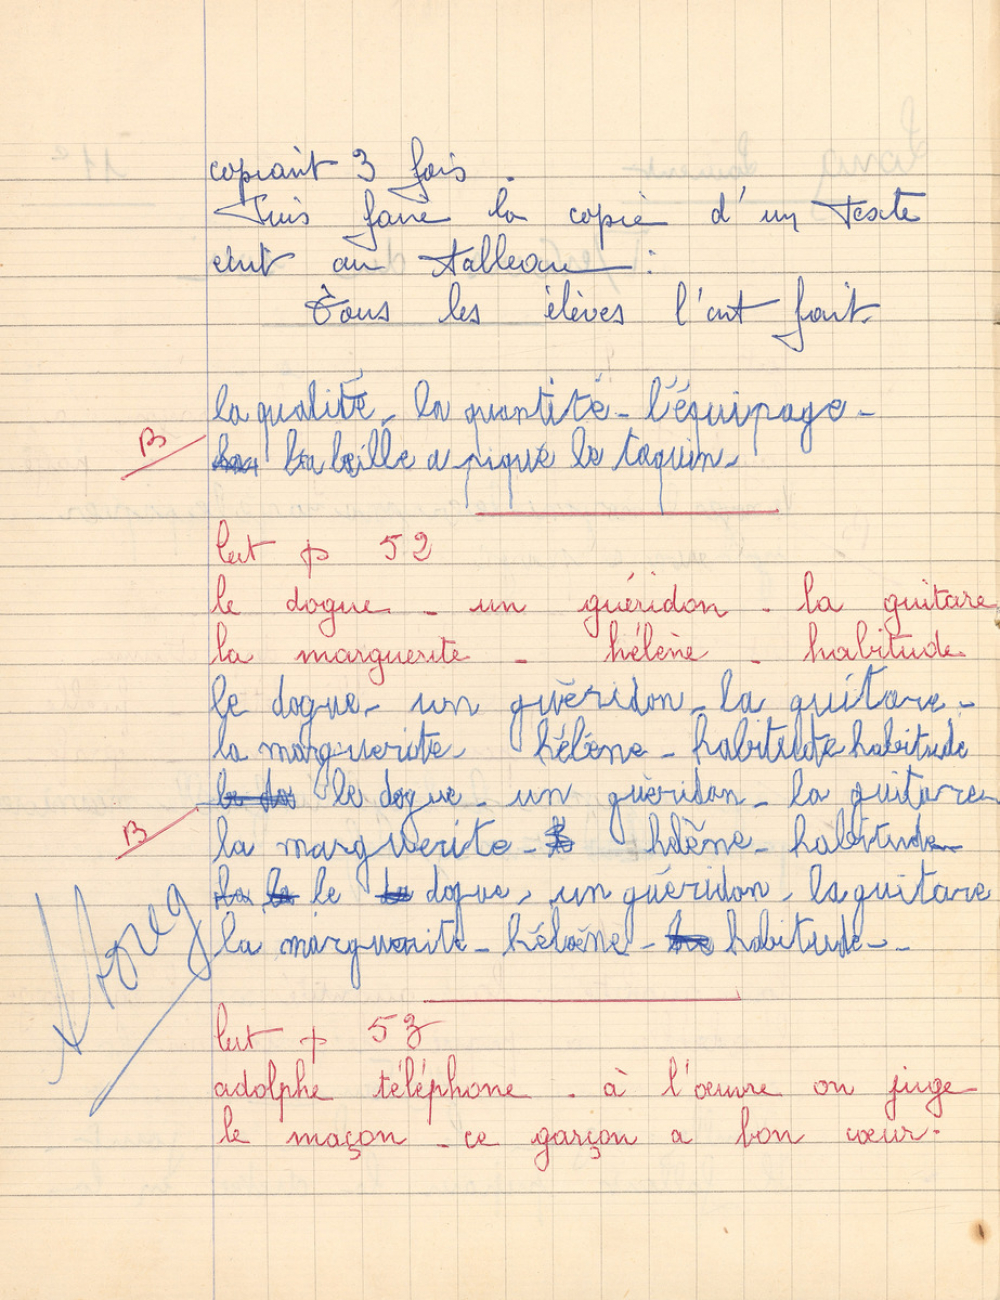 copiant 3 fois.
Puis faire la copie d'un texte
écrit au tableau :
Tous les élèves l'ont fait.
la qualité - la quantité - l'équipage -
B
a piqué le taquin -
lut p 52
le dogue - un guéridon - la guitare
la marguerite - hélène - habitude
le dogue - un guéridon - la guitare -
la marguerite hélène - habitude habitude
le dogue - un guéridon - la guitare
B
la marguerite - hélène - habitude
le dogue - un guéridon - la guitare
la marguerite - hélène - habitude -
lut p 53
adolphe téléphone - à l'œuvre on juge
le maçon - ce garçon a bon cœur.